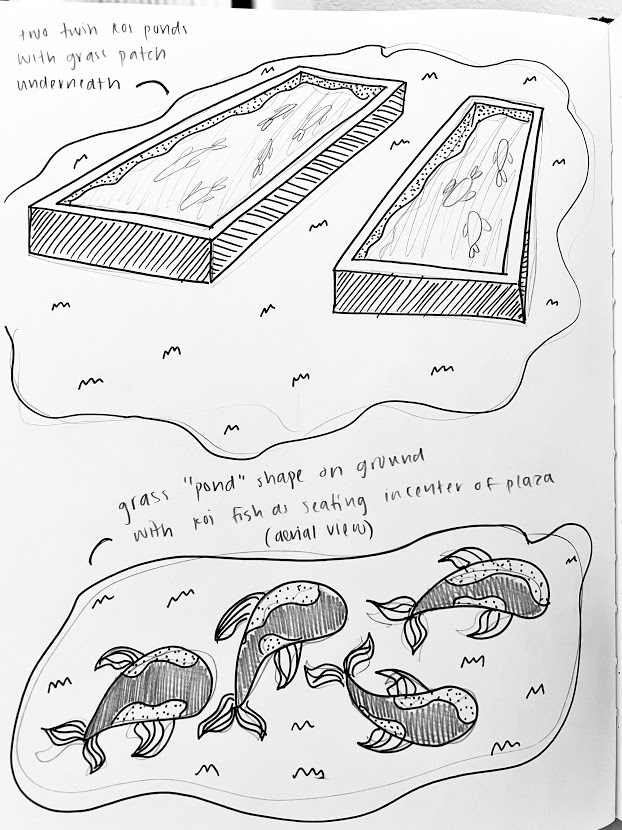 two twin koi ponds
with grass patch
underneath
grass "pond" shape on ground
with koi fish as seating in center of plaza
(aerial view)